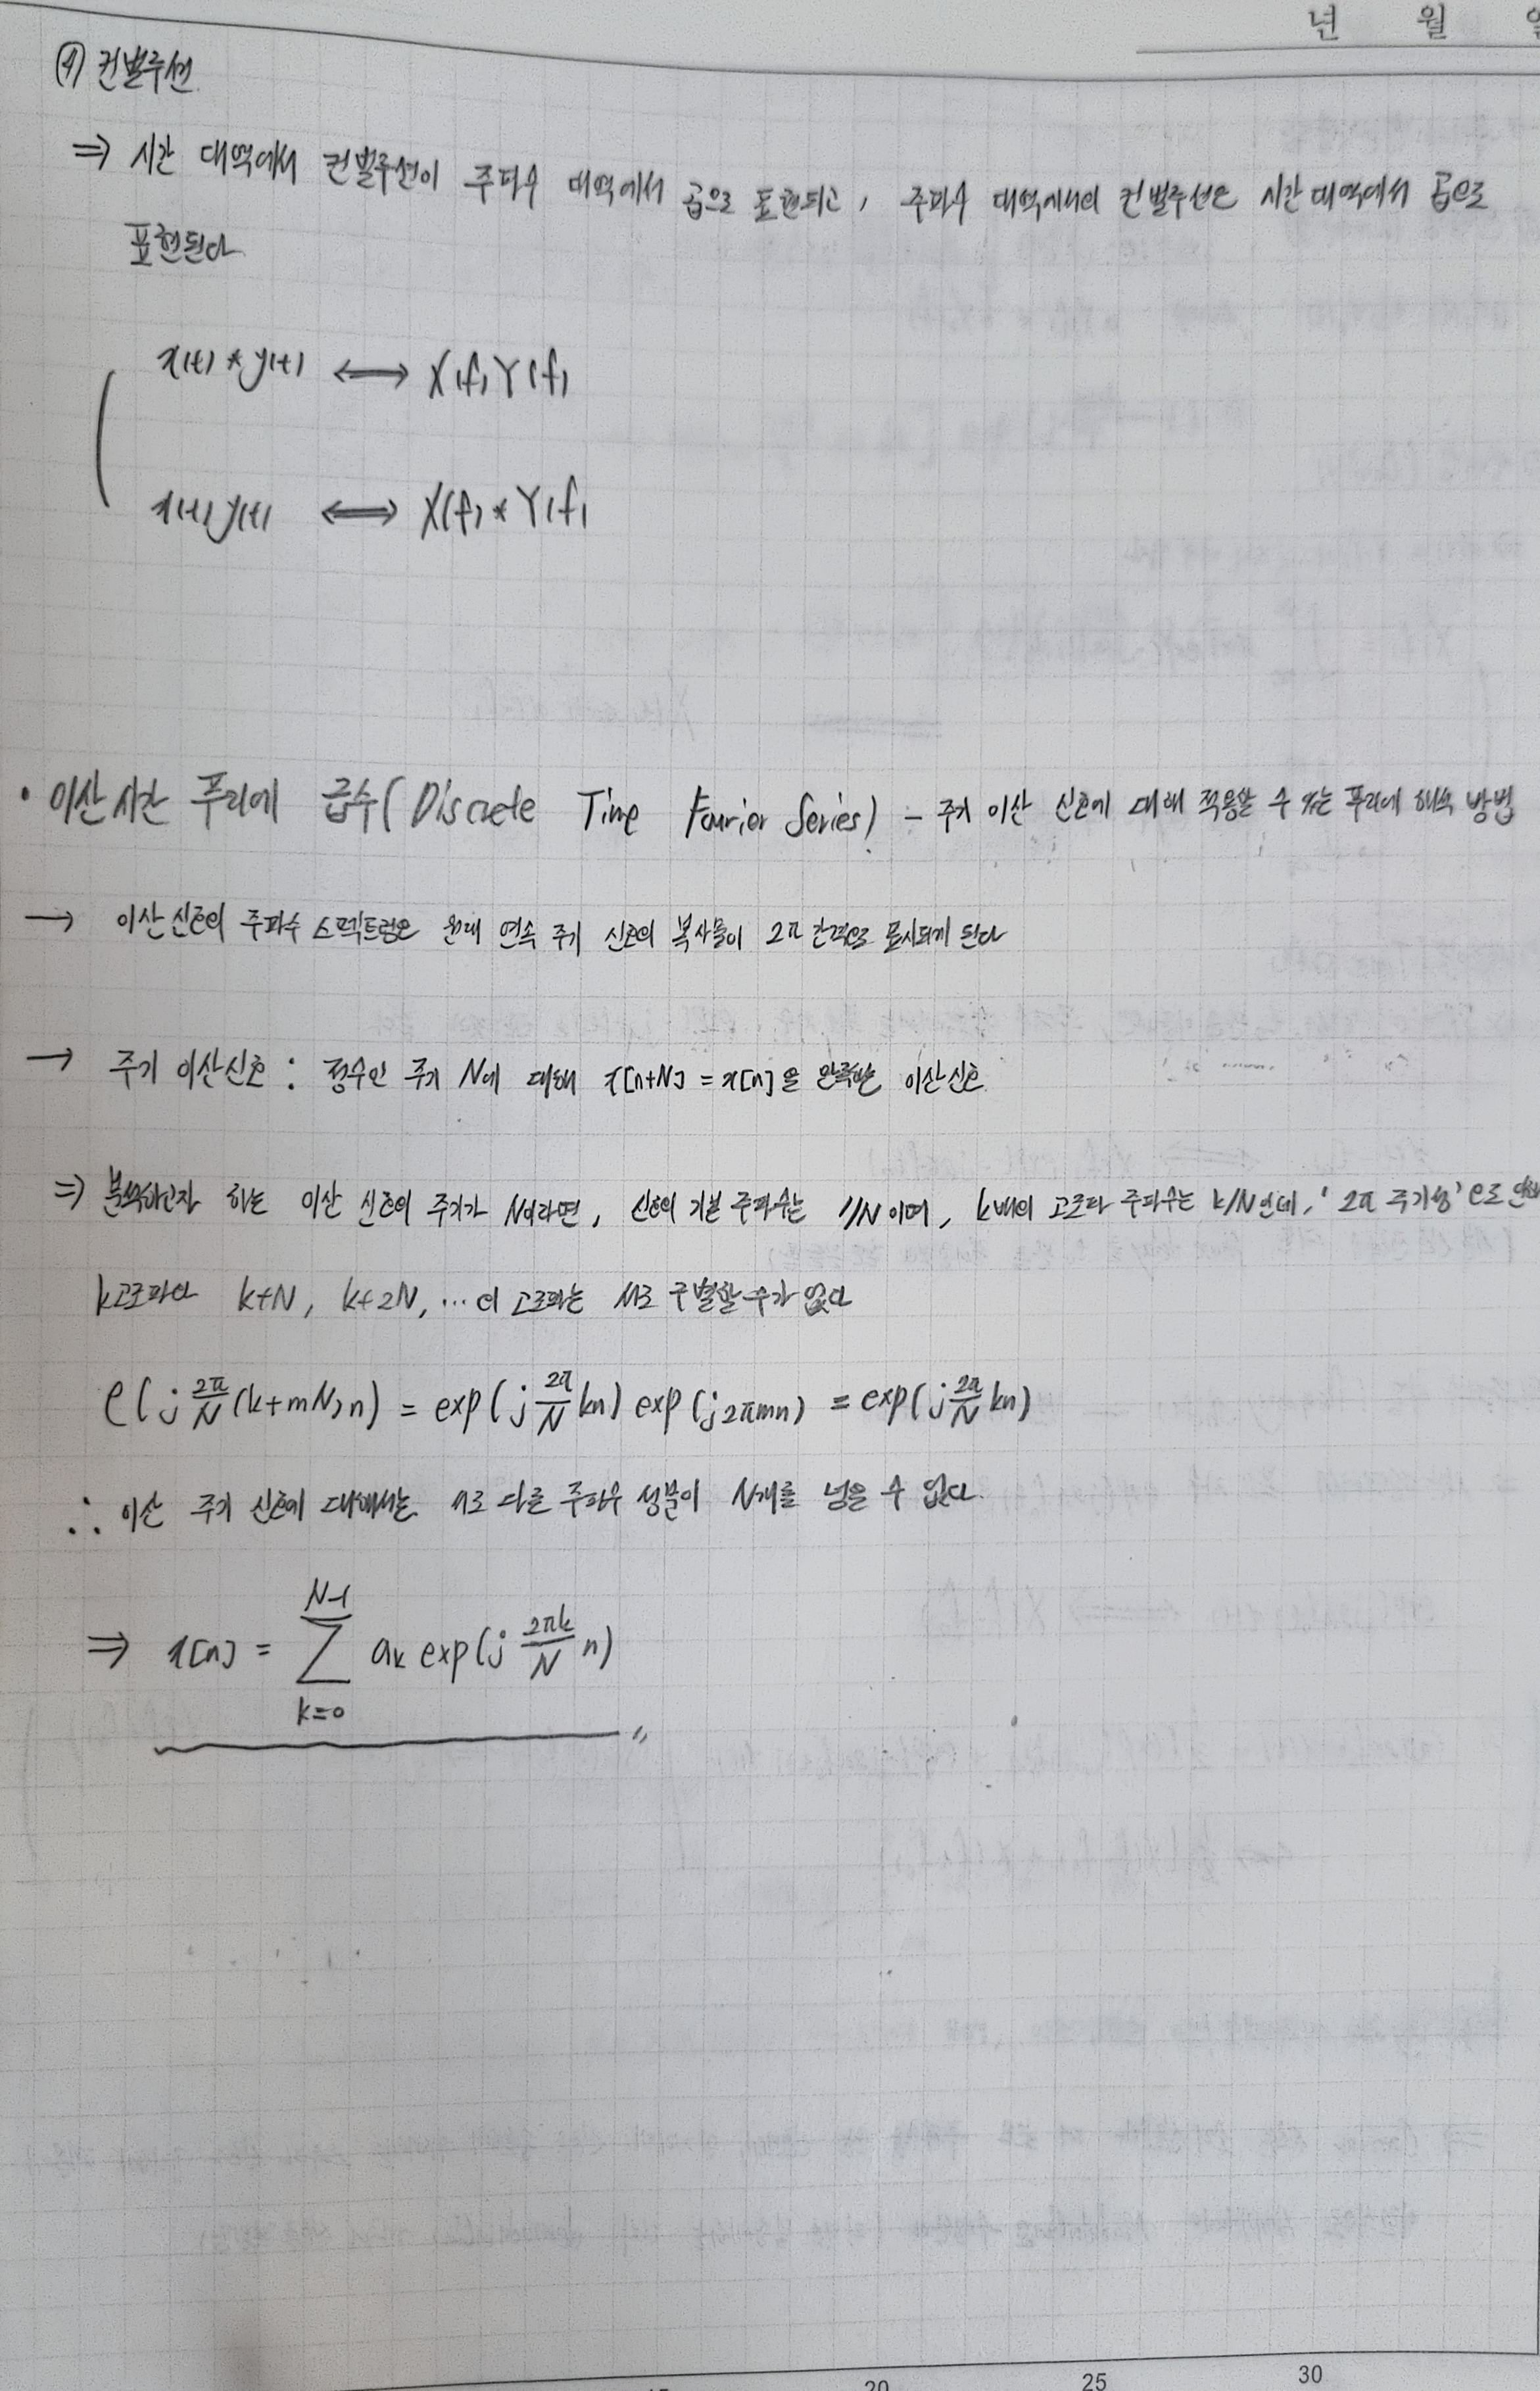 년 월 일
(4) 컨벌루션
⇒ 시간 대역에서 컨벌루션이 주파수 대역에서 곱으로 표현되고, 주파수 대역에서의 컨벌루션은 시간 대역에서 곱으로
표현된다
x(t) * y(t) ⟷ X(f)Y(f)
x(t)y(t) ⟷ X(f) * Y(f)
• 이산 시간 푸리에 급수 (Discrete Time Fourier Series) - 주기 이산 신호에 대해 적용할 수 있는 푸리에 해석 방법
→ 이산 신호의 주파수 스펙트럼은 원래 연속 주기 신호의 복사물이 2π 간격으로 표시되게 된다
→ 주기 이산신호 : 정수인 주기 N에 대해 x[n+N] = x[n]을 만족하는 이산신호
⇒ 분석하고자 하는 이산 신호의 주기가 N이라면, 신호의 기본 주파수는 1/N이며, k배의 고조파 주파수는 k/N인데, '2π 주기성'으로 인해
k고조파와 k+N, k+2N, ...의 고조파는 서로 구별할 수가 없다
e(j 2π/N (k+mN)n) = exp(j 2π/N kn) exp(j2πmn) = exp(j 2π/N kn)
∴ 이산 주기 신호에 대해서는 서로 다른 주파수 성분이 N개를 넘을 수 없다.
⇒ x[n] = Σ_{k=0}^{N-1} ak exp(j 2πk/N n) 〃
20 25 30